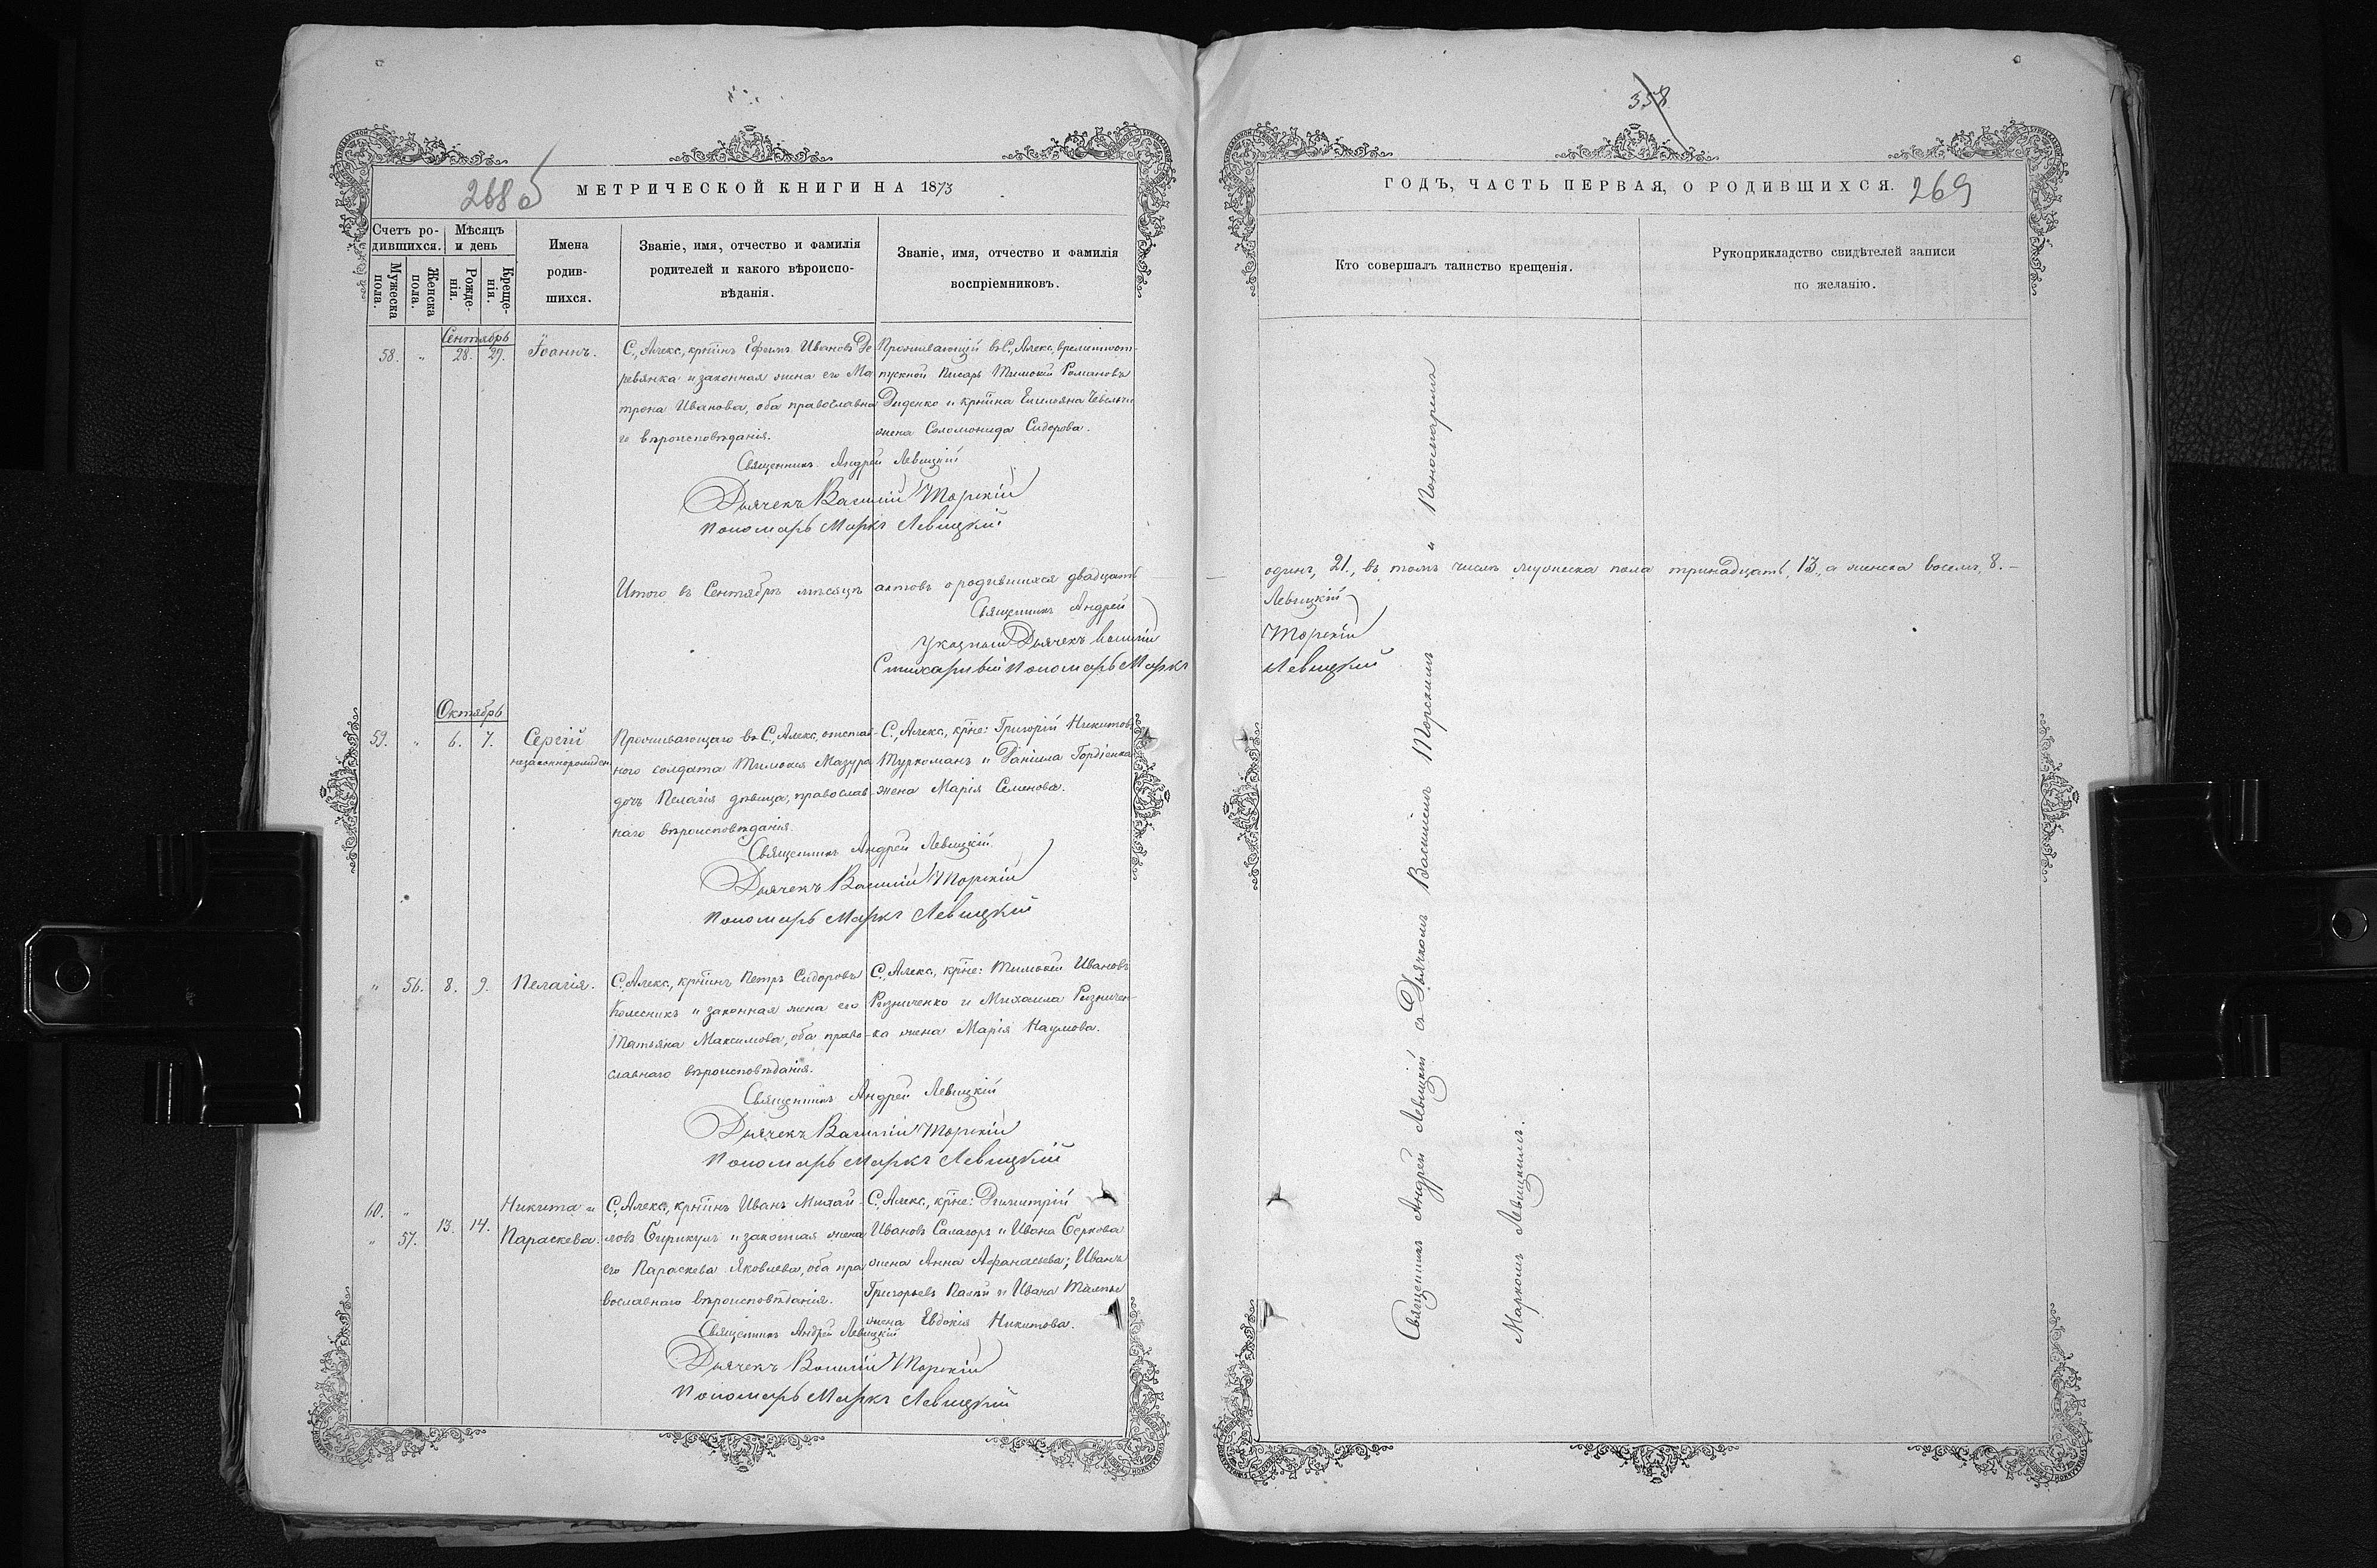 268 б
МЕТРИЧЕСКОЙ КНИГИ НА 1873
Счетъ ро-
дившихся.
Мѣсяцъ
и день
Мужеска
пола.
Женска
пола.
Рожде-
нія.
Креще-
нія.
Имена
родив-
шихся.
Званіе, имя, отчество и фамилія
родителей и какого вѣроиспо-
вѣданія.
Званіе, имя, отчество и фамилія
воспріемниковъ.
Сентябрь
58. " 28. 29. Іоаннъ.
С. Алекс., кр̃нинъ Ефимъ Ивановъ Де
ревянка и законная жена его Ма
трона Иванова, оба православна
го вѣроисповѣданія.
Проживающій въ С. Алекс. временноот-
пускной писарь Тимоѳей Романовъ
Диденко и кр̃нина Емельяна
жена Соломонида Сидорова.
Священникъ Андрей Левицкій
Дьячекъ Василій Торскій
Пономарь Маркъ Левицкій
Итого въ Сентябрѣ мѣсяцѣ актовъ о родившихся двадцать
Священникъ Андрей
Указный Дьячекъ Василій
Стихарный Пономарь Маркъ
Октябрь
59. " 6. 7. Сергій
незаконнорожден.
Проживающаго въ С. Алекс. отстав-
ного солдата Тимоѳея Мазура
дочь Пелагія дѣвица, православ-
наго вѣроисповѣданія.
С. Алекс., кр̃не: Григорій Никитовъ
Туркоманъ и Даніила Гордіенка
жена Марія Семенова.
Священникъ Андрей Левицкій
Дьячекъ Василій Торскій
Пономарь Маркъ Левицкій
" 56. 8. 9. Пелагія.
С. Алекс., кр̃нинъ Петръ Сидоровъ
Колесникъ и законная жена его
Татьяна Максимова, оба право-
славнаго вѣроисповѣданія.
С. Алекс., кр̃не: Тимоѳей Ивановъ
Рѣзниченко и Михаила Рѣзничен-
ка жена Марія Наумова.
Священникъ Андрей Левицкій
Дьячекъ Василій Торскій
Пономарь Маркъ Левицкій
60. "
" 57. 13. 14.
Никита и
Параскева.
С. Алекс., кр̃нинъ Иванъ Михай-
ловъ и законная жена
его Параскева Яковлева, оба пра
вославнаго вѣроисповѣданія.
С. Алекс., кр̃не: Димитрій
Ивановъ Салагоръ и Ивана Серкова
жена Анна Аѳанасьева; Иванъ
Григорьевъ Палій и Ивана
жена Евдокія Никитова.
Священникъ Андрей Левицкій
Дьячекъ Василій Торскій
Пономарь Маркъ Левицкій
358
ГОДЪ, ЧАСТЬ ПЕРВАЯ, О РОДИВШИХСЯ. 269
Кто совершалъ таинство крещенія.
Рукоприкладство свидѣтелей записи
по желанію.
одинъ, 21., въ томъ числѣ мужеска пола тринадцать, 13., а женска восемь, 8.–
Левицкій
Торскій
Левицкій
Священникъ Андрей Левицкій съ Дьячкомъ Василіемъ Торскимъ и Пономаремъ
Маркомъ Левицкимъ.